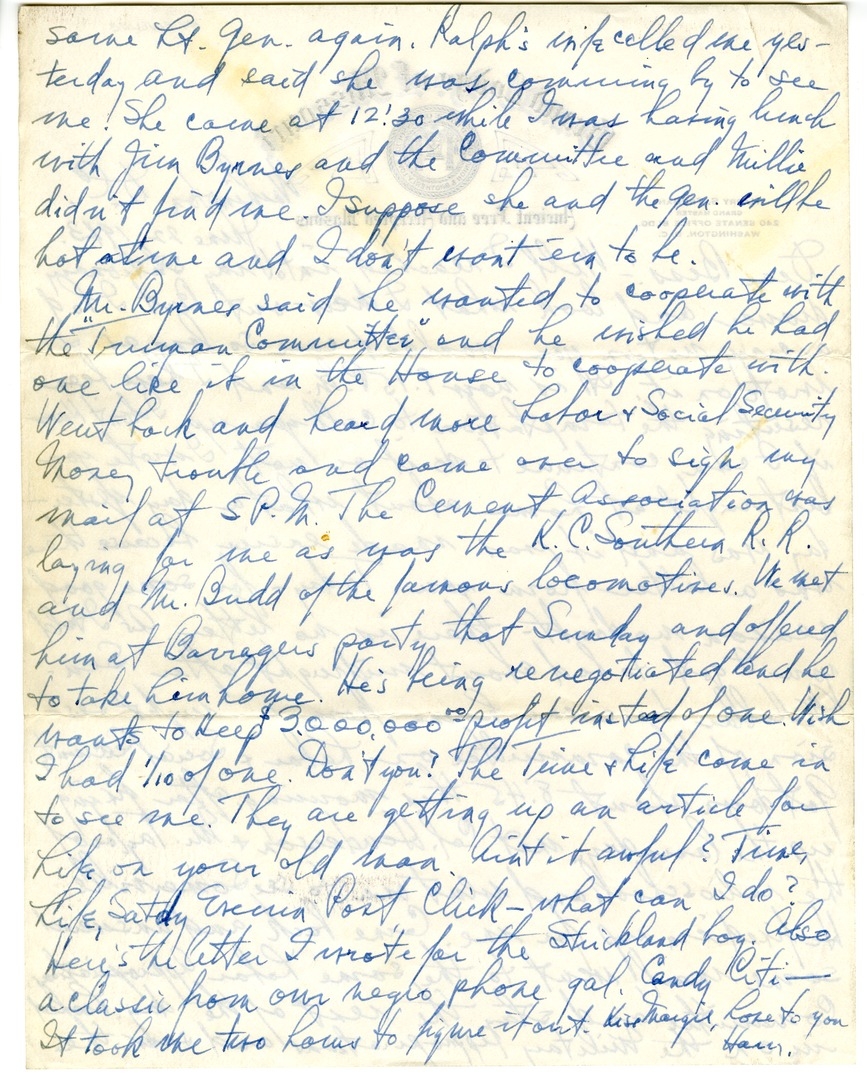 some Lt. Gen. again. Ralph's wife called me yes-
terday and said she was comming by to see
me. She came at 12:30 while I was having lunch
with Jim Byrnes and the Committee and Millie
didn't find me. I suppose she and the gen. will be
hot at me and I don't want 'em to be.
Mr. Byrnes said he wanted to cooperate with
the "Truman Committee" and he wished he had
one like it in the House to cooperate with.
Went back and heard more Labor & Social Security
Money trouble and came over to sign my
mail at 5 P.M. The Cement Association was
laying for me as was the K.C. Southern R.R.
and Mr. Budd of the famous locomotives. We met
him at Barragers party that Sunday and offered
to take him home. He's being renegotiated and he
wants to keep $3,000,000.00 profit instead of one. Wish
I had 1/10 of one. Don't you? The Time & Life came in
to see me. They are getting up an article for
Life on your old man. Ain't it awful? Time,
Life, Satdy Evenin Post, Click - what can I do?
Here's the letter I wrote for the Strickland boy. Also
a classic from our negro phone gal. Candy Citi—
It took me two hours to figure it out. Kiss Margie, love to you
Harry.